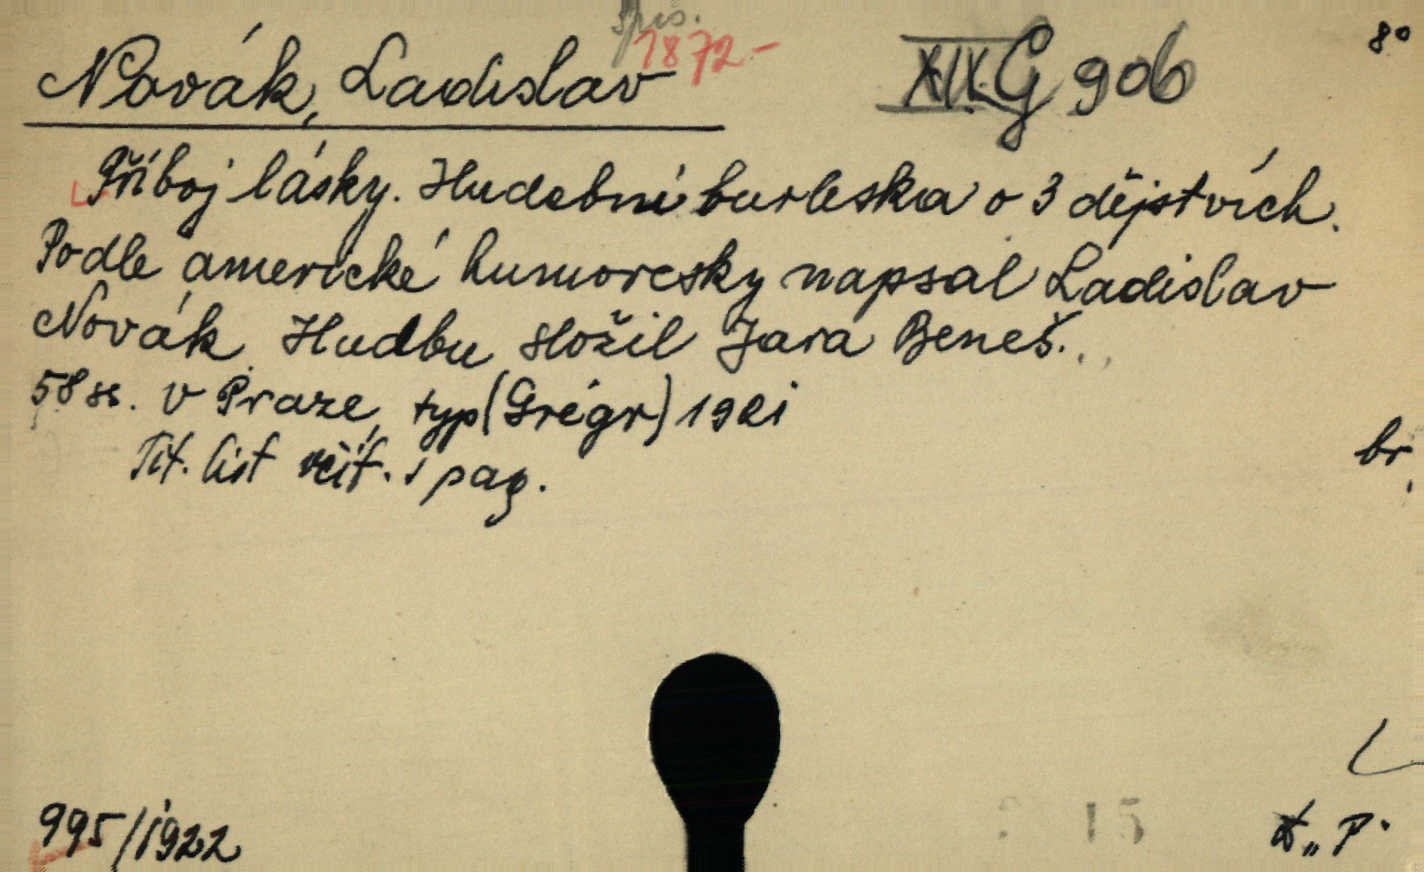 spis.
Novák, Ladislav 1872- XIX G 906 8°
Příboj lásky. Hudební burleska o 3 dějstvích.
Podle americké humoresky napsal Ladislav
Novák Hudbu složil Jara Beneš.
58 ss. v Praze, typ (Grégr) 1921
Tit. list včít. v pag.
br.
995/1922
15